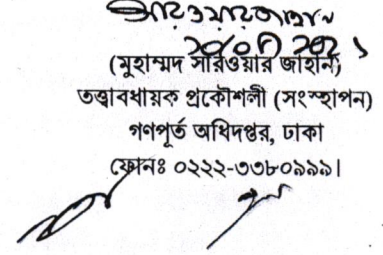 (মুহাম্মদ সারওয়ার জাহান)
তত্ত্বাবধায়ক প্রকৌশলী (সংস্হাপন)
গণপূর্ত অধিদপ্তর, ঢাকা
ফোনঃ ০২২২-৩৩৮০৯৯৯।